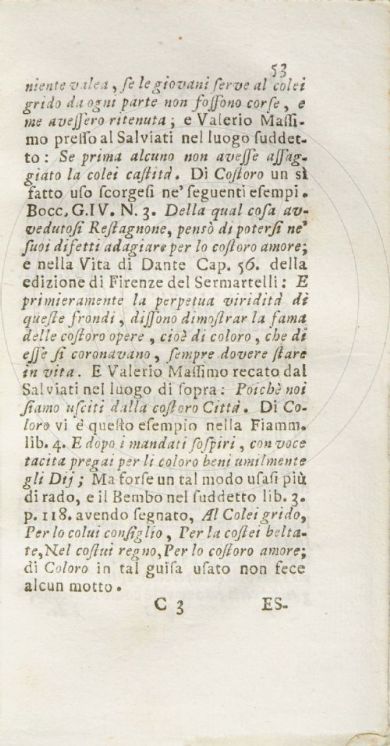 53
niente valea, ſe le giovani ſerve al colei
grido da ogni parte non foſſono corſe, e
me aveſſero ritenuta; e Valerio Maſſi-
mo preſſo al Salviati nel luogo ſuddet-
to: Se prima alcuno non aveſſe aſſag-
giato la colei caſtità. Di Coſtoro un sì
fatto uſo ſcorgeſi ne' ſeguenti eſempi.
Bocc. G. IV. N. 3. Della qual coſa av-
vedutoſi Reſtagnone, pensò di poterſi ne'
ſuoi difetti adagiare per lo coſtoro amore;
e nella Vita di Dante Cap. 56. della
edizione di Firenze del Sermartelli: E
primieramente la perpetua viridità di
queſte frondi, diſſono dimoſtrar la fama
delle coſtoro opere, cioè di coloro, che di
eſſe ſi coronavano, ſempre dovere ſtare
in vita. E Valerio Maſſimo recato dal
Salviati nel luogo di ſopra: Poichè noi
ſiamo uſciti dalla coſtoro Città. Di Co-
loro vi è queſto eſempio nella Fiamm.
lib. 4. E dopo i mandati ſoſpiri, con voce
tacita pregai per li coloro beni umilmente
gli Dij; Ma forſe un tal modo uſaſi più
di rado, e il Bembo nel ſuddetto lib. 3.
p. 118. avendo ſegnato, Al Colei grido,
Per lo colui conſiglio, Per la coſtei belta-
te, Nel coſtui regno, Per lo coſtoro amore;
di Coloro in tal guiſa uſato non fece
alcun motto.
C 3 ES-